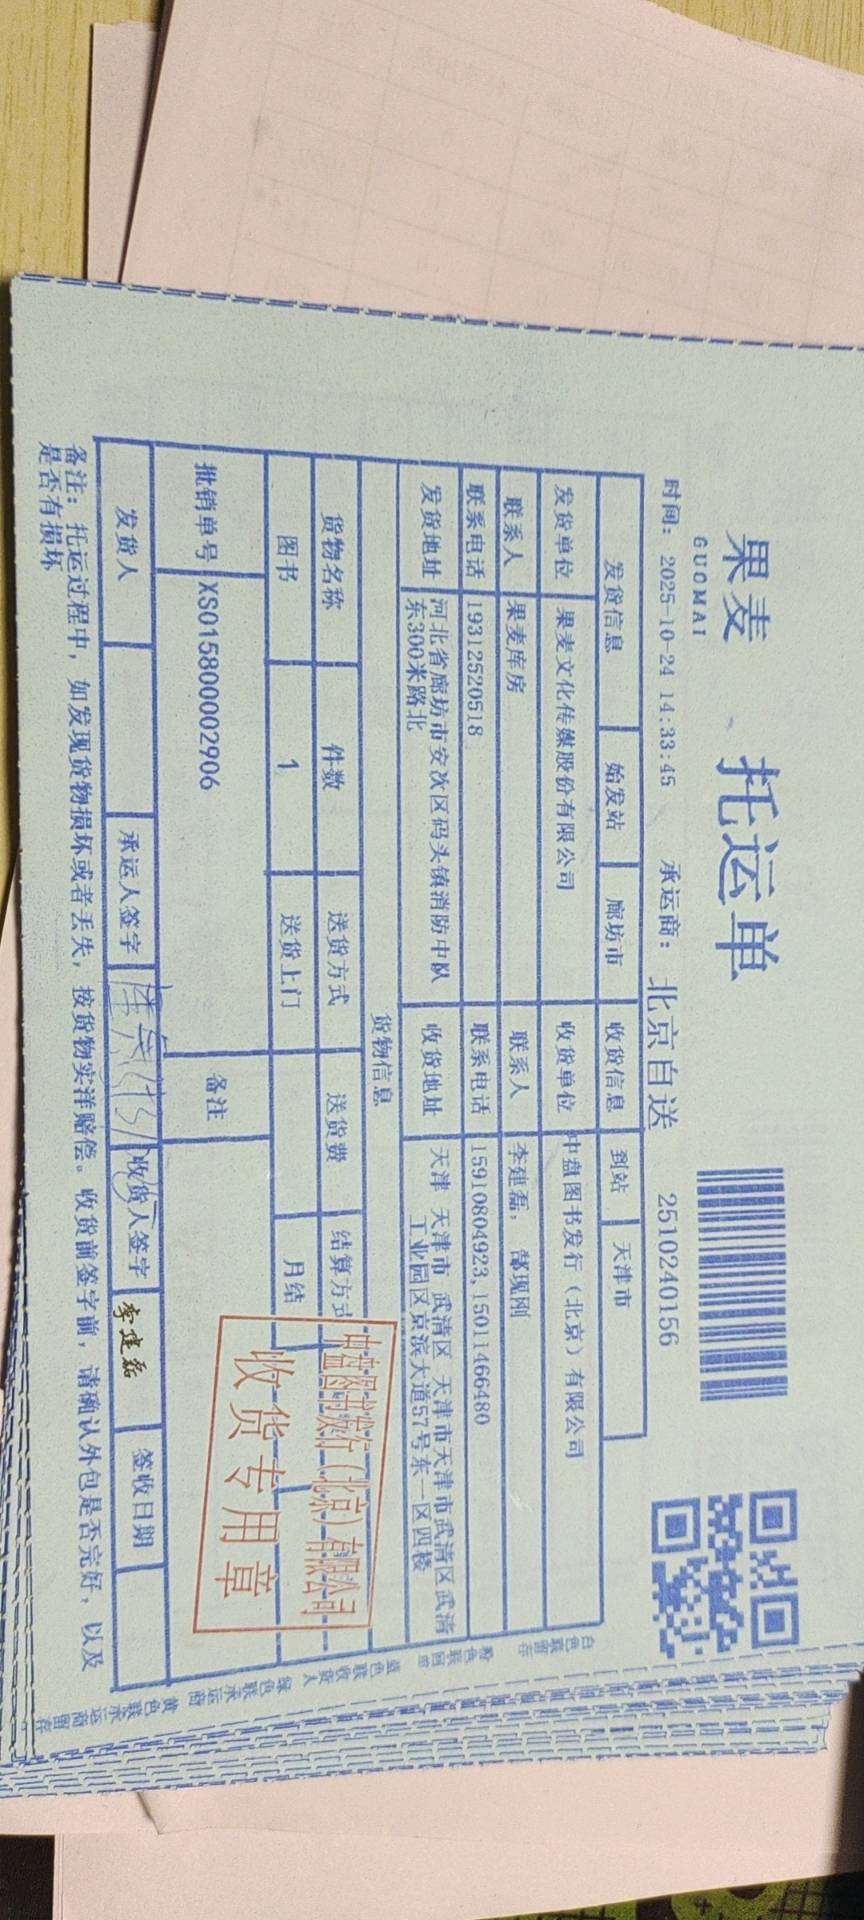 果麦
GUOMAI
托运单
时间: 2025-10-24 14:33:45 承运商: 北京自送 2510240156
发货信息 始发站 廊坊市 收货信息 到站 天津市
发货单位 果麦文化传媒股份有限公司 收货单位 中盘图书发行（北京）有限公司
联系人 果麦库房 联系人 李建磊, 郜现刚
联系电话 19312520518 联系电话 15910804923,15011466480
发货地址 河北省廊坊市安次区码头镇消防中队
东300米路北
收货地址 天津 天津市 武清区 天津市天津市武清区武清
工业园区京滨大道57号东一区四楼
货物信息
货物名称 件数 送货方式 送货费 结算方式
图书 1 送货上门 月结
批销单号 XS015800002906 备注
中盘图书发行（北京）有限公司
收货专用章
发货人 承运人签字 收货人签字 李建磊 签收日期
备注: 托运过程中，如发现货物损坏或者丢失，按货物实洋赔偿。收货前签字前，请确认外包是否完好，以及
是否有损坏
白色联留存
粉色联回单
蓝色联收货人
绿色联承运商
黄色联承运商留存